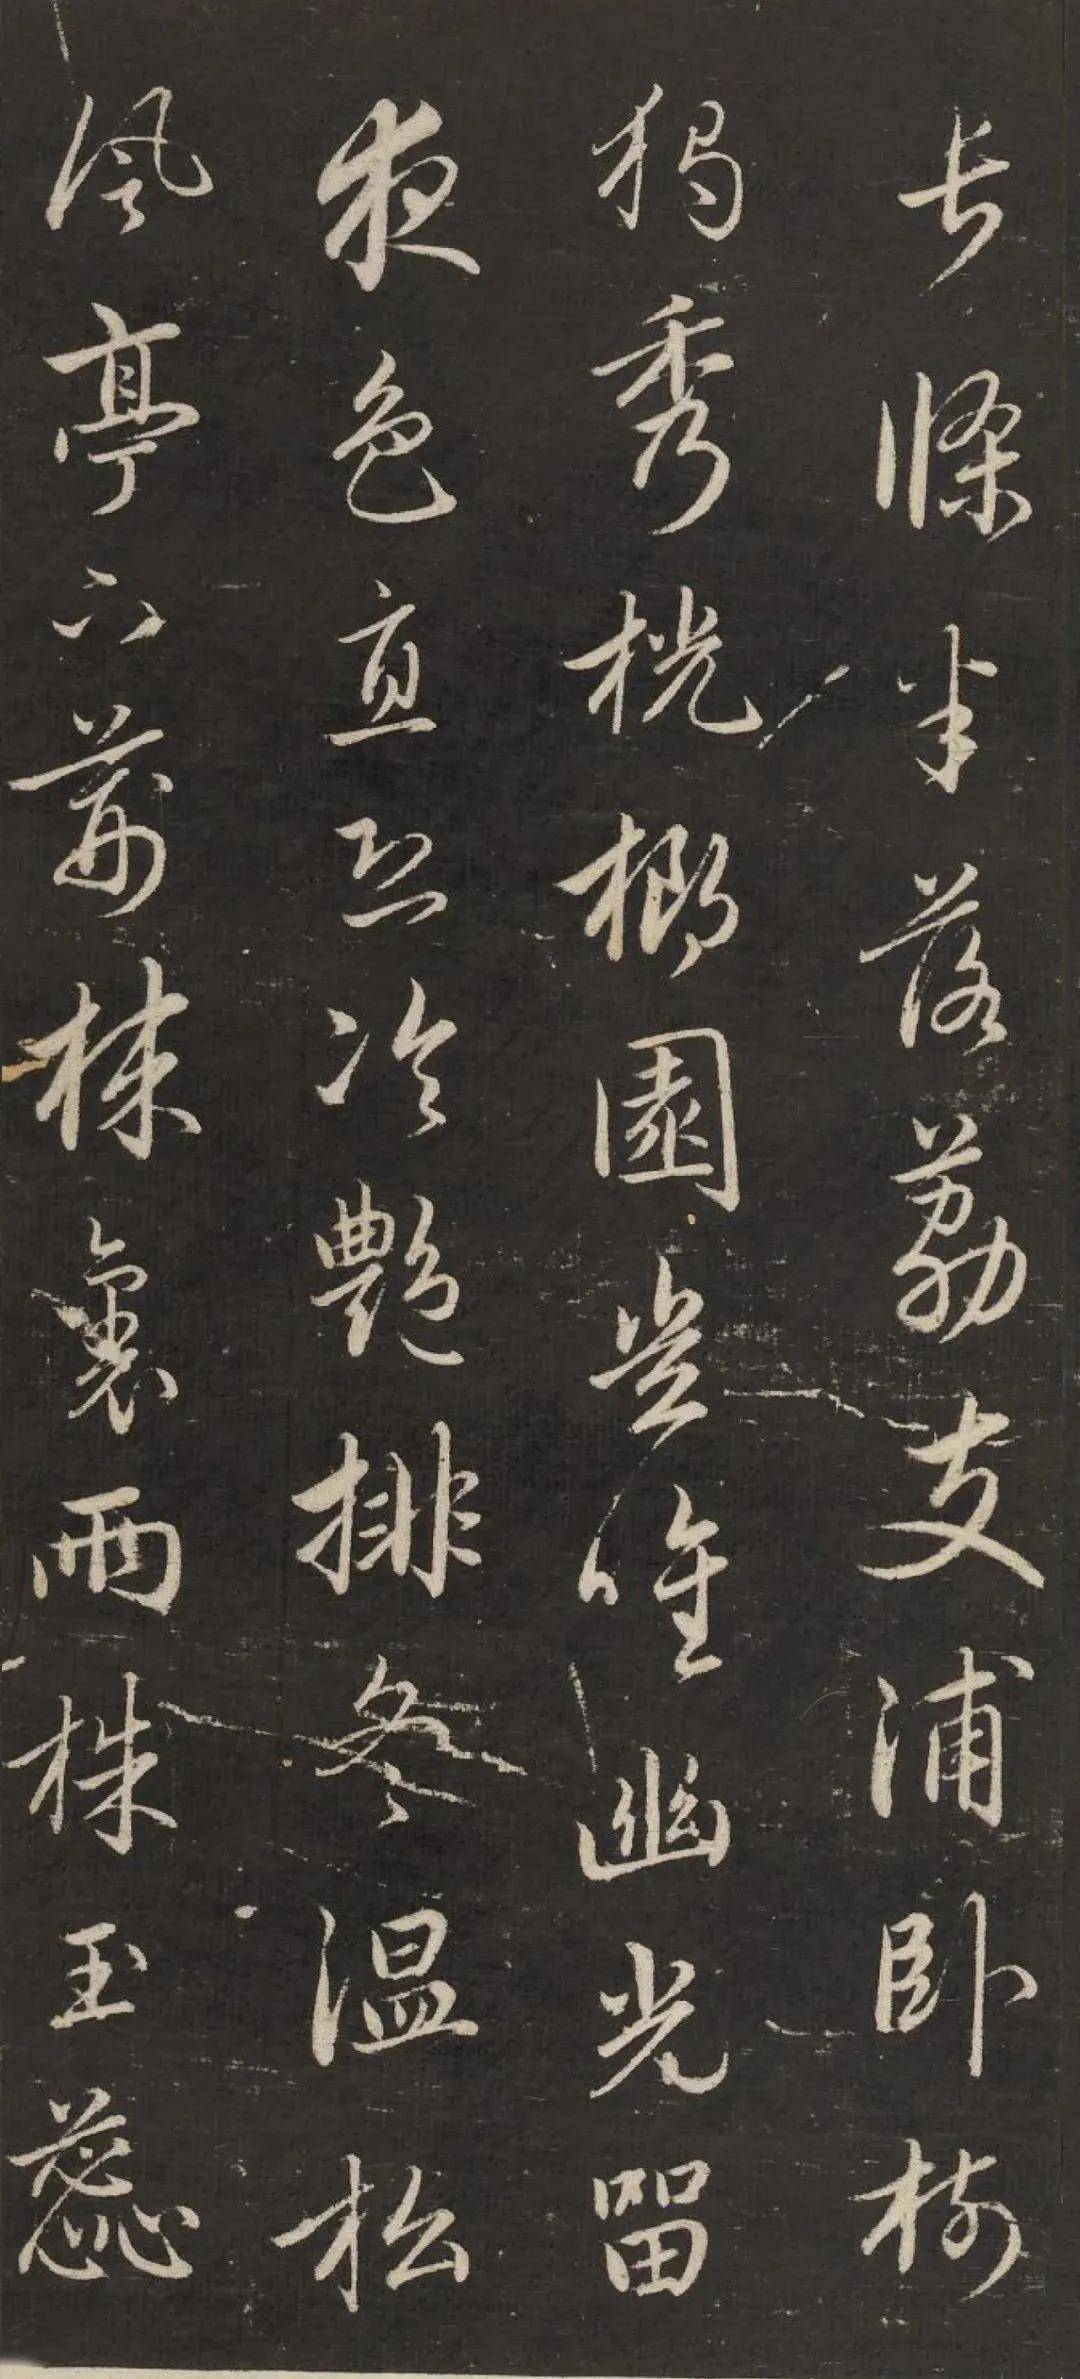 長條半落荔支浦臥樹
獨秀桄榔園豈惟幽光留
夜色直恐冷艷排冬溫松
風亭下荊棘裏兩株玉蕊